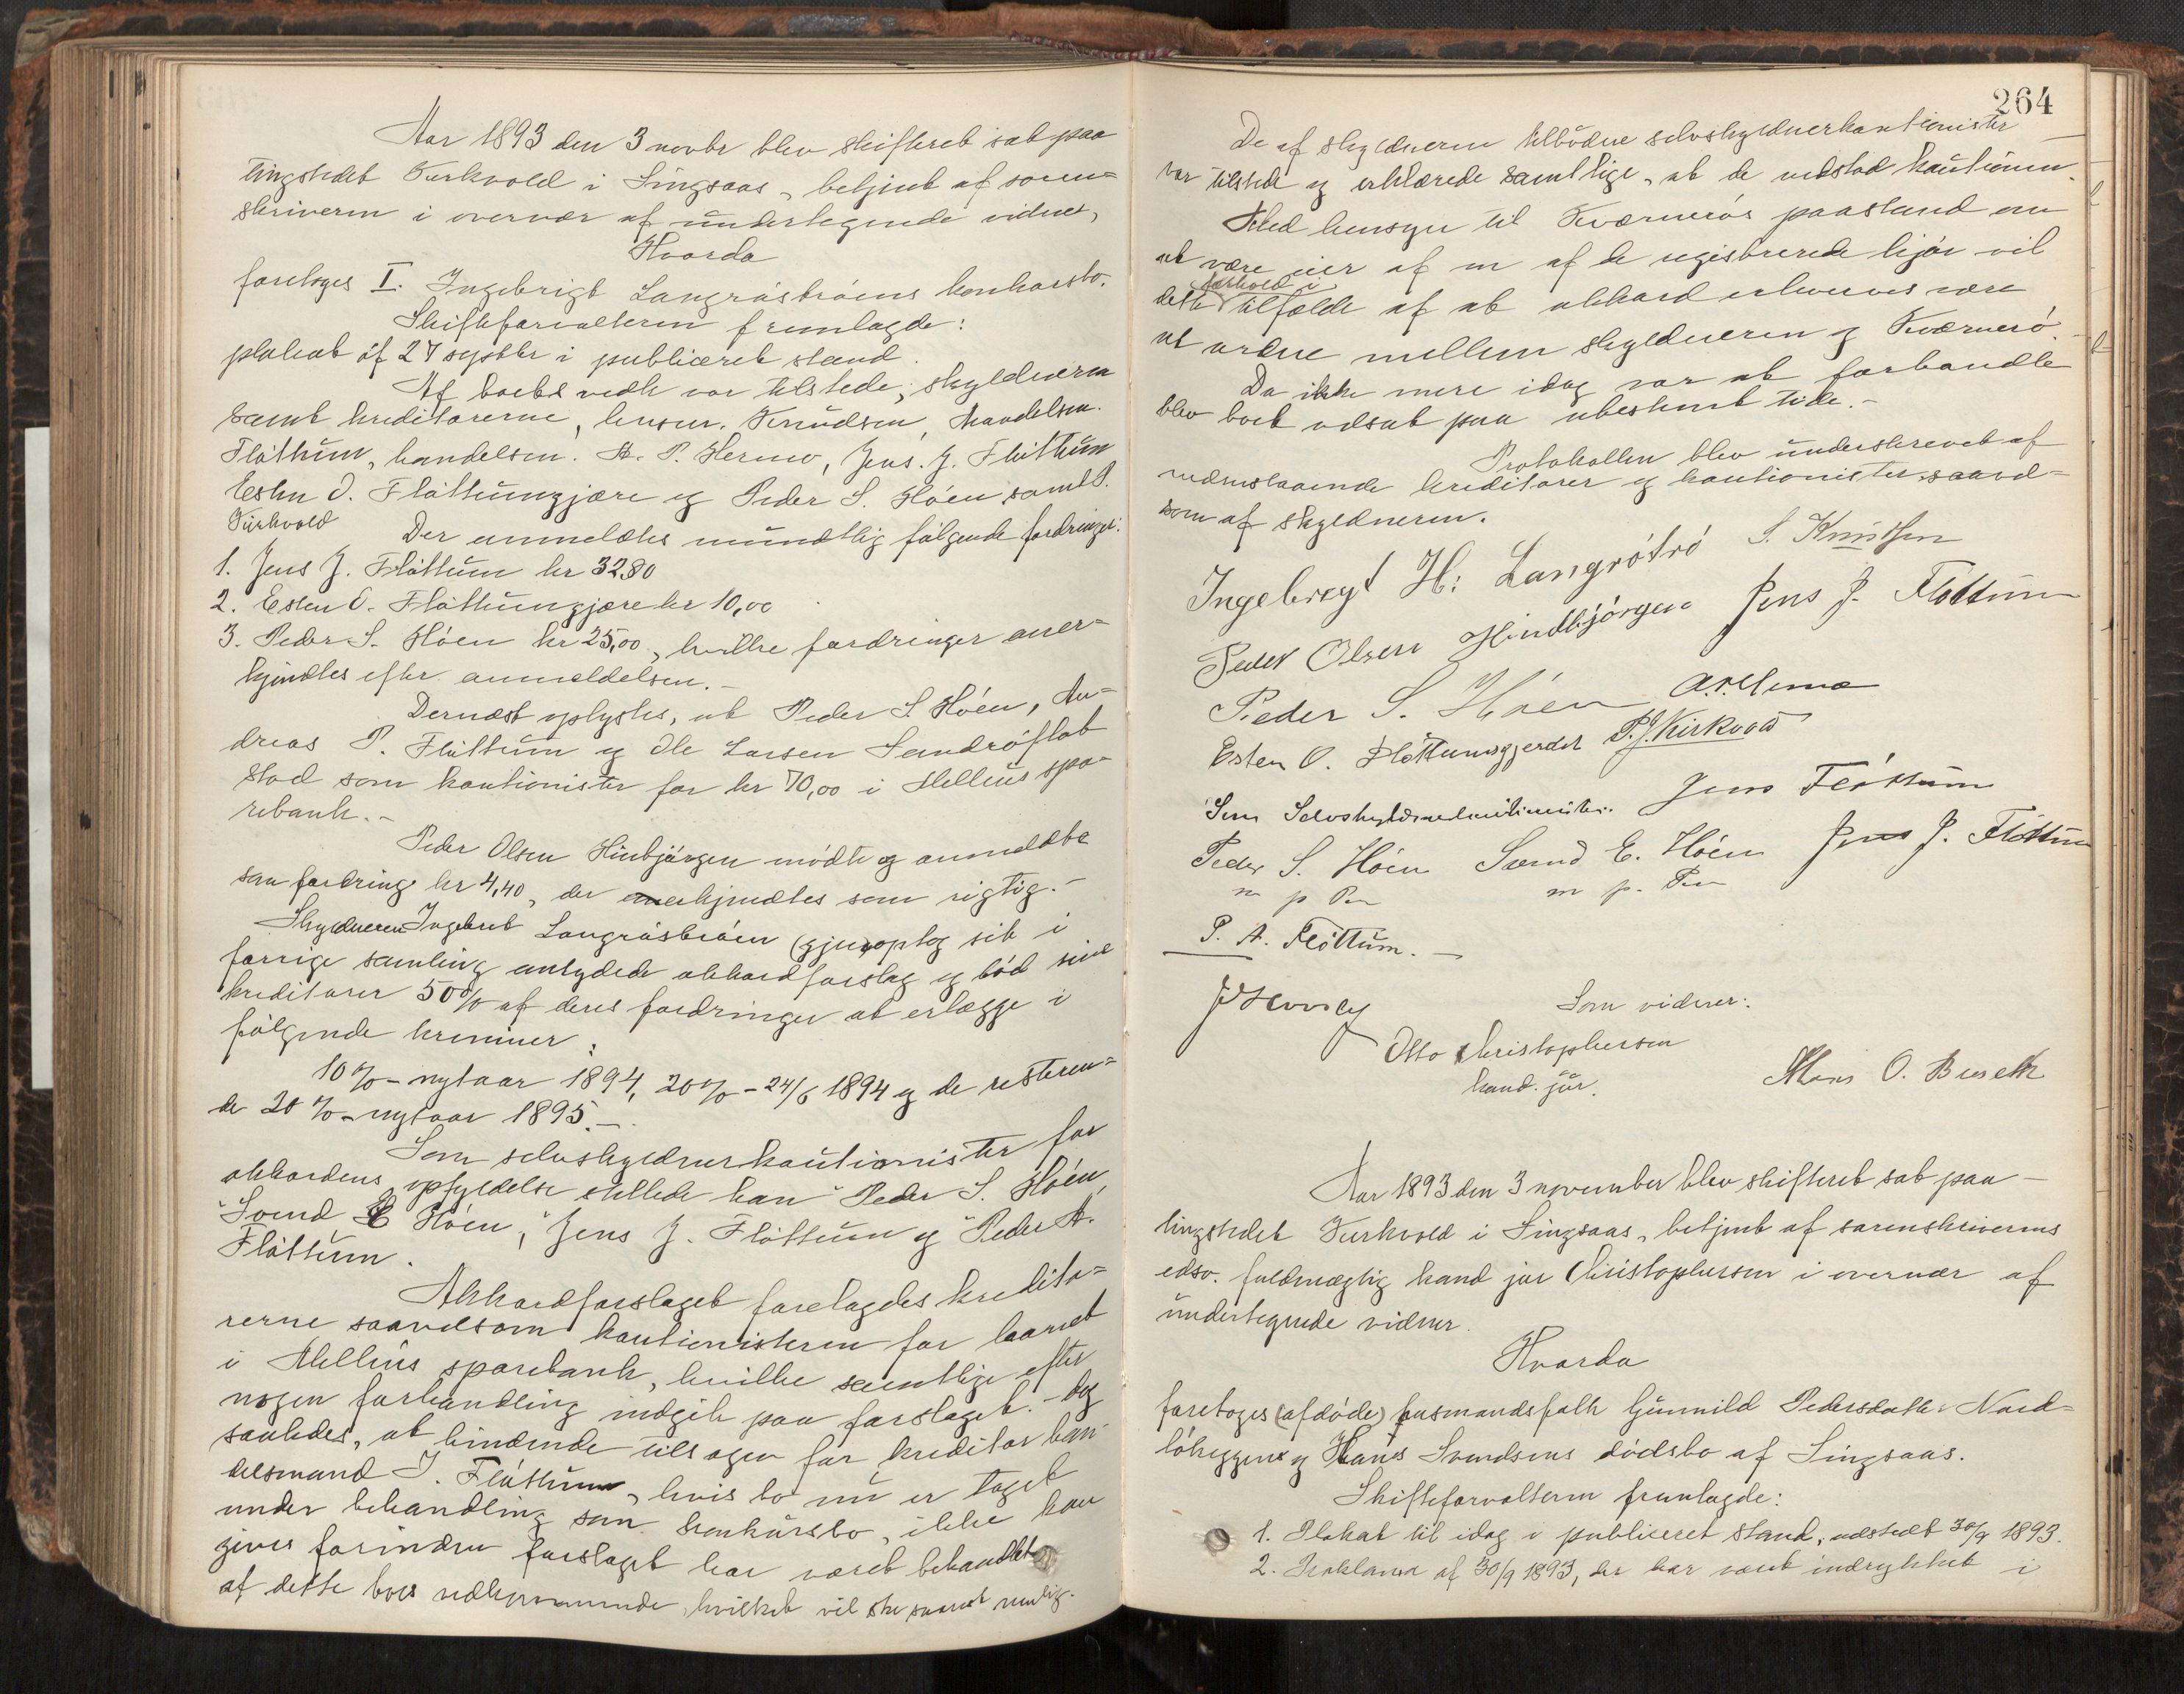 Aar 1893 den 3 novbr blev skifteret sat paa
tingstedet Kurkvold i Singsaas, betjent af soren=
skriveren i overvær af undertegnede vidner,
Hvorda
foretoges I. Ingebrigt Langråstråens konkursbo.
Skifteforvalteren fremlagde:
plakat af 27 septbr i publiceret stand.
Af boets vedk var tilstede, skyldneren
samt kreditorerne, lensm. Knudsen, handelsm.
Flåttum, handelsm. A. P. Hermo, Jens. J. Flåttum
Esten O. Flåttumgjære og Peder S. Håen samt P.
Kirkvold
Der anmeldtes mundtlig følgende fordringer:
1. Jens J. Flåttum kr 32,80
2. Esten O. Flåttumgjære kr 10,00
3. Peder S. Håen kr 25,00, hvilke fordringer aner=
kjendtes efter anmeldelsen.-
Dernæst oplystes, at Peder S. Håen, An=
dreas P. Flåttum og Ole Larsen Sandråflat
stod som kautionister for kr 70,00 i Melhus spa=
rebank.-
Peder Olsen Hindbjørgen mødte og anmeldte
som fordring kr 4,40, der anerkjendtes som rigtig.-
Skyldneren Ingebret Langråstråen (gjen)optog sit i
forrige samling antydede akkordforslag og bød sine
kreditorer 50% af deres fordringer at erlægge i
følgende terminer:
10% - nytaar 1894, 20% - 24/6 1894 og de resteren=
de 20% - nytaar 1895.-
Som selvskyldnerkautionister for
akkordens opfyldelse stillede han Peder S. Håen,
Svend E Håen, Jens J. Flåttum og Peder A.
Flåttum.
Akkordforslaget forelagdes kredito=
rerne saavelsom kautionisterne for laanet
i Melhus sparebank, hvilke samtlige efter
nogen forhandling indgik paa forslaget. - dog
saaledes, at bindende tilsagn for kreditor han=
delsmand J. Flåttum, hvis bo nu er taget
under behandling som konkursbo, ikke kan
gives forinden forslaget har været behandlet
af dette boes vedkommende, hvilket vil ske snarest mulig.
264
De af skyldneren tilbødne selvskyldnerkautionister
var tilstede og erklærede samtlige, at de vedstod kautionen.
Med hensyn til Kværnerøs paastand om
at være eier af en af de registrerede kjør vil
forhold i
dette tilfælde af at akkord erhverves være
at ordne mellem skyldneren og Kværnerø.
Da ikke mere idag var at forhandle
blev boet udsat paa ubestemt tid.-
Protokollen blev underskrevet af
nedenstaaende kreditorer og kautionister saavel=
som af skyldneren.
Ingebregt H: Langrötrö S. Knudsen
Peder Olsen Hindbjörgen Jens J. Flöttum
Peder S. Håen A.P. Hermo
Esten O. Flöttumsgjerdet P. J. Kirkvold
Som Selvskyldnerkautionister. Jens Flöttum
Peder S. Håen Svend E. Håen Jens J. Flöttum
m p Pen m p. Pen
P. A. Flöttum. -
Som vidner:
Otto Christophersen
kand. jur.
Hans O. Bureth
Aar 1893 den 3 november blev skifteret sat paa
tingstedet Kurkvold i Singsaas, betjent af sorenskriverens
edsv. fuldmægtig kand jur Christophersen i overvær af
undertegnede vidner.
Hvorda
foretoges (afdøde) husmandsfolk Gunnild Pedersdatter Nord=
løkeggen og Hans Svendsens dødsbo af Singsaas.
Skifteforvalteren fremlagde:
1. Plakat til idag i publiceret stand, udstedt 30/9 1893.
2. Proklama af 30/9 1893, der har været indrykket i